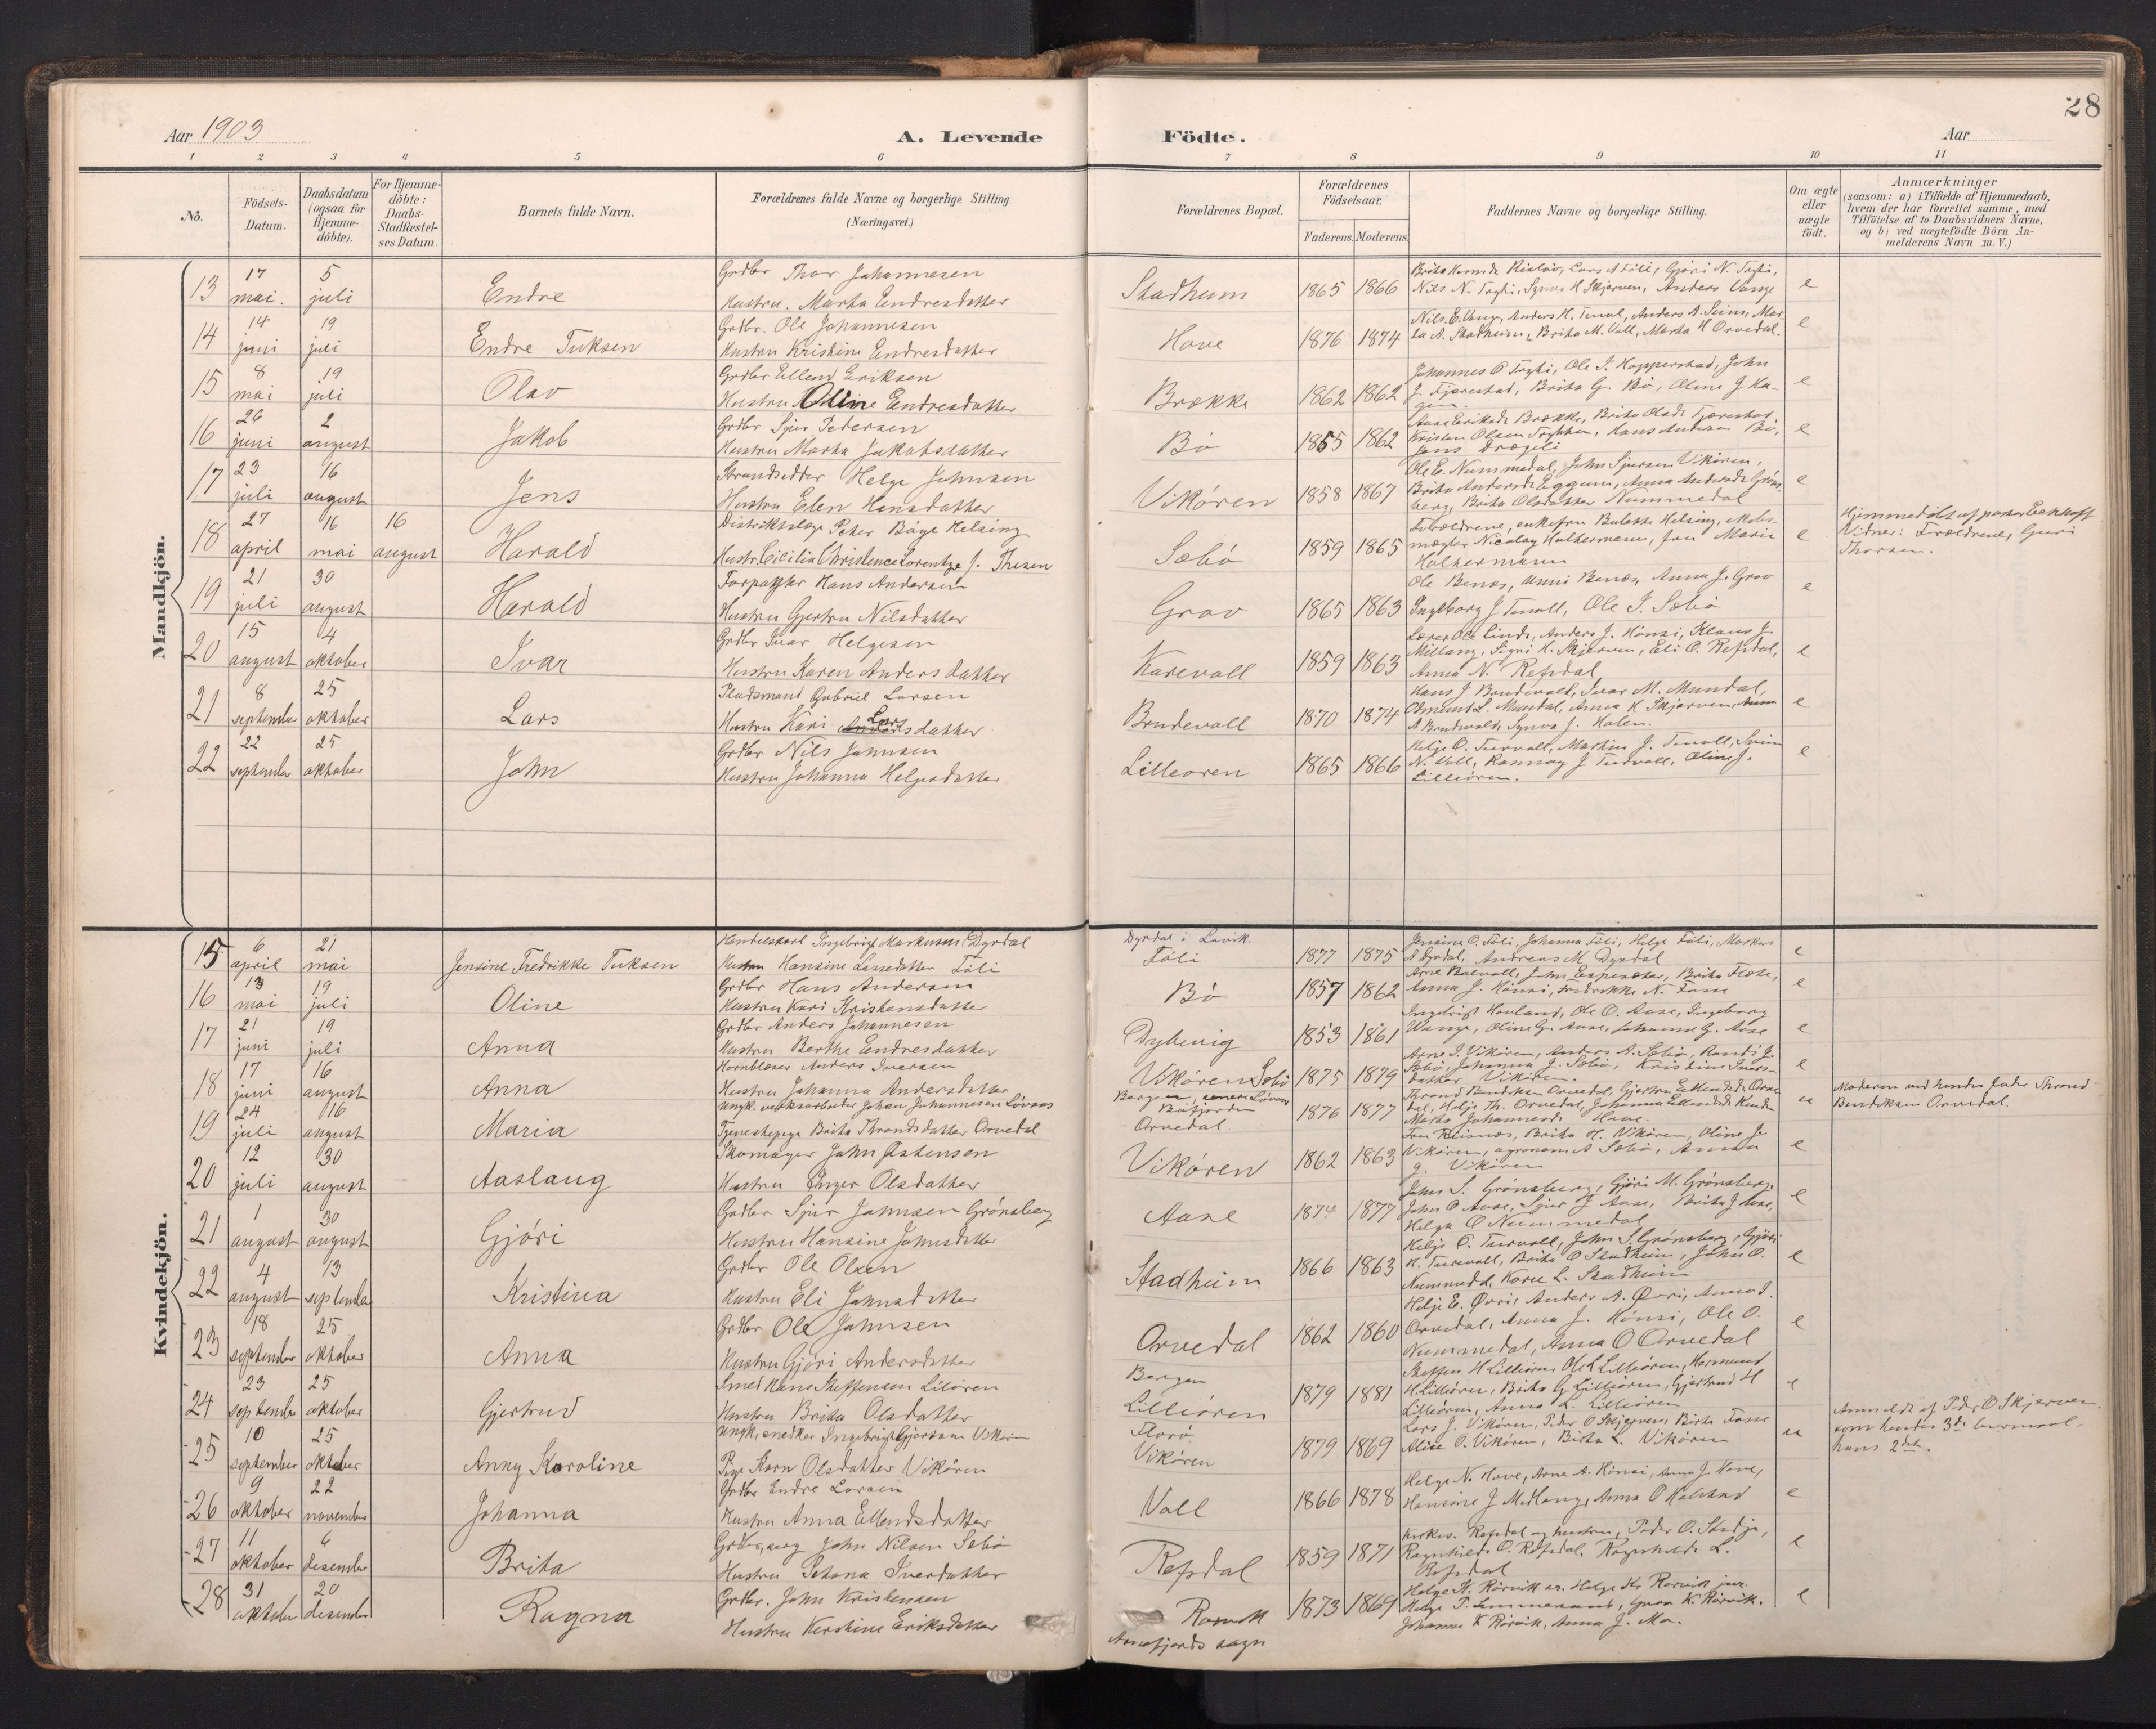 28
Aar 1903
A. Levende Födte.
Aar
1 2 3 4 5 6 7 8 9 10 11
Nô.
Födsels-
Datum.
Daabsdatum
(ogsaa for
Hjemme-
döbte).
For Hjemme-
döbte:
Daabs-
Stadfæstel-
ses Datum.
Barnets fulde Navn.
Forældrenes fulde Navne og borgerlige Stilling.
(Næringsvei.)
Forældrenes Bopæl.
Forældrenes
Födselsaar.
Faderens. Moderens.
Faddernes Navne og borgerlige Stilling.
Om ægte
eller
uægte
födt.
Anmærkninger
(saasom: a) i Tilfælde af Hjemmedaab,
hvem der har forrettet samme, med
Tilföielse af to Daabsvidners Navne,
og b) ved uægtefödte Börn An-
melderens Navn m. V.)
Mandkjön.
13 17 mai. 5 juli Endre
Grdbr Thor Johannesen
Hustru. Marta Endresdatter
Stadheim 1865 1866
Nils N. Tryti, Synva H. Skjerven, Anders Vange
e
14 14 juni 19 juli Endre Tuksen
Grdbr. Ole Johannesen
Hustru Kristine Endresdatter
Hove 1876 1874
ta A. Stadheim, Brita M. Voll, Marta H Orvedal.
e
15 8 mai 19 juli Olav
Grdbr Ellend Eriksen
Hustru Oline Endresdatter
Brække 1862 1862
Johannes O Tryti, Ole I. Hopperstad, John
J. Fjærestad, Brita G. Bö, Oline J Ha-
gen.
e
16 26 juni 2 august Jakob
Grdbr Sjur Pedersen
Hustru Marta Jakobsdatter
Bö 1855 1862
Aase Eriksdr Brække, Brita Olsdr Fjærestad,
Kristen Olsen Tryti, Hans Andersen Bö,
Jens Drægeli
e
17 23 juli 16 august Jens
Strandsidder Helge Johnsen
Hustru Elen Hansdatter
Vikören 1858 1867
Ole E. Nummedal, John Sjursen Vikören,
Brita Andersdr Eggum, Anna Andersdr Gröns-
berg, Brita Olsdatter Nummedal
e
18 27 april 16 mai 16 august Harald
Distriktslæge Peter Böge Helsing
Hustr. Cicilia Christence Lorentze J. Thesen
Sæbö 1859 1865
Forældrene, enkefru Bolette Helsing,
mægler Nicolay Holtermann, fru Marie
Holtermann
e
Hjemmedöbt af pastor Eckhoff
Vidner: Forældrene, Guri
Thorsen.
19 21 juli 30 august Harald
Forpagter Hans Andersen
Hustru Gjertru Nilsdatter
Grov 1865 1863
Ole Bences, Anni Bences, Anna J. Grov
Ingeborg J. Turvoll, Ole J. Sæbö
e
20 15 august 4 oktober Ivar
Grdbr Ivar Helgesen
Hustru Karen Andersdatter
Karevoll 1859 1863
Lærer Ole Linde, Anders J. Hönsi, Klaus J.
Millang, Sigri H. Skjerven, Eli O. Refsdal,
Anna N. Refsdal
e
21 8 september 25 oktober Lars
Pladsmand Gabriel Larsen
Hustru Kari Larsdatter
Brudevoll 1870 1874
Hans J Brudevoll, Ivar M. Mundal,
Odmund L. Mundal, Anna H Skjerven, Anna
A Brudevoll, Synva J. Holen.
e
22 22 september 25 oktober John
Grdbr Nils Johnsen
Hustru Johanna Helgesdatter
Lilleören 1865 1866
Helje O. Turvoll, Martin J. Turvoll, Svein
N. Voll, Rannay J Turvoll, Oline J.
Lilleören.
e
Kvindekjön.
15 6 april 21 mai Jensine Fredrikke Tuksen
Handelskarl Ingebrigt Markusen Dyrdal
Hustru Hansine Lassedatter Föli
Dyrdal i Lavik.
Föli 1877 1875
Jensine O. Föli, Johanna Föli, Helge Föli, Markus
A Dyrdal, Andreas M. Dyrdal
e
16 13 mai 19 juli Oline
Grdbr Hans Andersen
Hustru Kari Kristensdatter
Bö 1857 1862
Anna J. Hönsi, Fredrikke N. Fosse
e
17 21 juni 19 juli Anna
Grdbr Anders Johannesen
Hustru Berthe Endresdatter
Dybevig 1853 1861
Ingebrigt Hovland, Ole O. Aase, Ingeborg
Wange, Oline G. Aase, Johanna G. Aase
e
18 17 juni 16 august Anna
Hornblæser Anders Iversen
Hustru Johanna Andersdatter
Vikören Sæbö 1875 1879
Arne I. Vikören, Anders A. Sæbö, Randi J.
Sæbö, Johanna J. Sæbö, Kristine Ivers-
datter Vikören.
e
19 24 juli 16 august Maria
Ungk. verksarbeider Johan Johannesen Lövaas
Tjenestepige Brita Throndsdatter Orvedal
Bergen, Lövaas
Orvedal 1876 1877
Thrond Bendiksen Orvedal, Gjertru Ellendsdr Orve
dal, Helje Th. Orvedal, Johanna Ellendsdr
Marta Johannesdr Hove.
u
Moderen ved hendes fader Thrond
Bendiksen Orvedal.
20 12 juli 30 august Aaslaug
Skomager John Østensen
Hustru Inger Olsdatter
Vikören 1862 1863
Brita H. Vikören, Oline J.
Vikören, agronom A Sæbö, Anna
J. Vikören
e
21 1 august 30 august Gjöri
Grdbr Sjur Johnsen Grönsberg
Hustru Hansine Johnsdatter
Aase 1874 1877
John S. Grönsberg, Gjöri M. Grönsberg,
John O Aase, Sjur J Aase, Brita J Aase,
Helga O Nummedal
e
22 4 august 13 september Kristina
Grdbr Ole Olsen
Hustru Eli Johnsdatter
Stadheim 1866 1863
Helje O. Turvoll, John S. Grönsberg, Gjöri
H. Turvoll, Brita O Stadheim, John O.
Nummedal, Kari L. Stadheim
e
23 18 september 25 oktober Anna
Grdbr Ole Johnsen
Hustru Gjöri Andersdatter
Orvedal 1862 1860
Helje E. Øvri, Anders A. Øvri, Anna J.
Orvedal, Anna J. Hönsi, Ole O.
Nummedal, Anna O Orvedal
e
24 23 september 25 oktober Gjertrud
Smed Hans Steffensen Lilören
Hustru Brita Olsdatter
Bergen
Lilleören 1879 1881
Steffen H Lilleören, Ole L Lilleören, Hermund
H. Lilleören, Brita G. Lilleören, Gjertrud H
Lilleören, Anna L. Lilleören
e
25 10 september 25 oktober Anny Karoline
Ungk. snedker Ingebrigt Gjertsen Vikören
Pige Karn Olsdatter Vikören
Florö
Vikören 1879 1869
Lars J. Vikören, Peder O Skjerven, Birte Fosse
Alice O. Vikören, Birta L. Vikören
u
Anmeldt af Peder O Skjerven
som hendes 3de
hans 2det.
26 9 oktober 22 november Johanna
Grdbr Endre Larsen
Hustru Anna Ellendsdatter
Voll 1866 1878
Helge N. Hove, Arne A. Hönsi, Anna J. Hove,
Hansine J Midlange, Anna O Halstad
e
27 11 oktober 6 desember Brita
John Nilsen Sæbö
Hustru Johana Iversdatter
Refsdal 1859 1871
Kirkes. Refsdal og hustru, Peder O. Stedje,
Ragnhild O. Refsdal, Ragnhilde L.
Refsdal
e
28 31 oktober 20 desember Ragna
Grdbr. John Kristensen
Hustru Kirstine Eriksdatter
Rörvik
Arnefjords sogn 1873 1869
Helge K. Rörvik sr. Helge Kr Rörvik jnr.
K. Rörvik.
Johanna K Rörvik, Anna J. Mo.
e